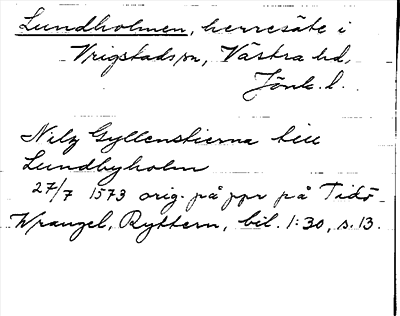 Lundholmen, herresäte i
Vrigstads sn, Västra hd,
Jönk. l.
Nilz Gyllenstierna till
Lundbyholm
27/7 1573 orig. på ppr på Tidö
Wrangel, Ryttern, bil. 1:30, s. 13.